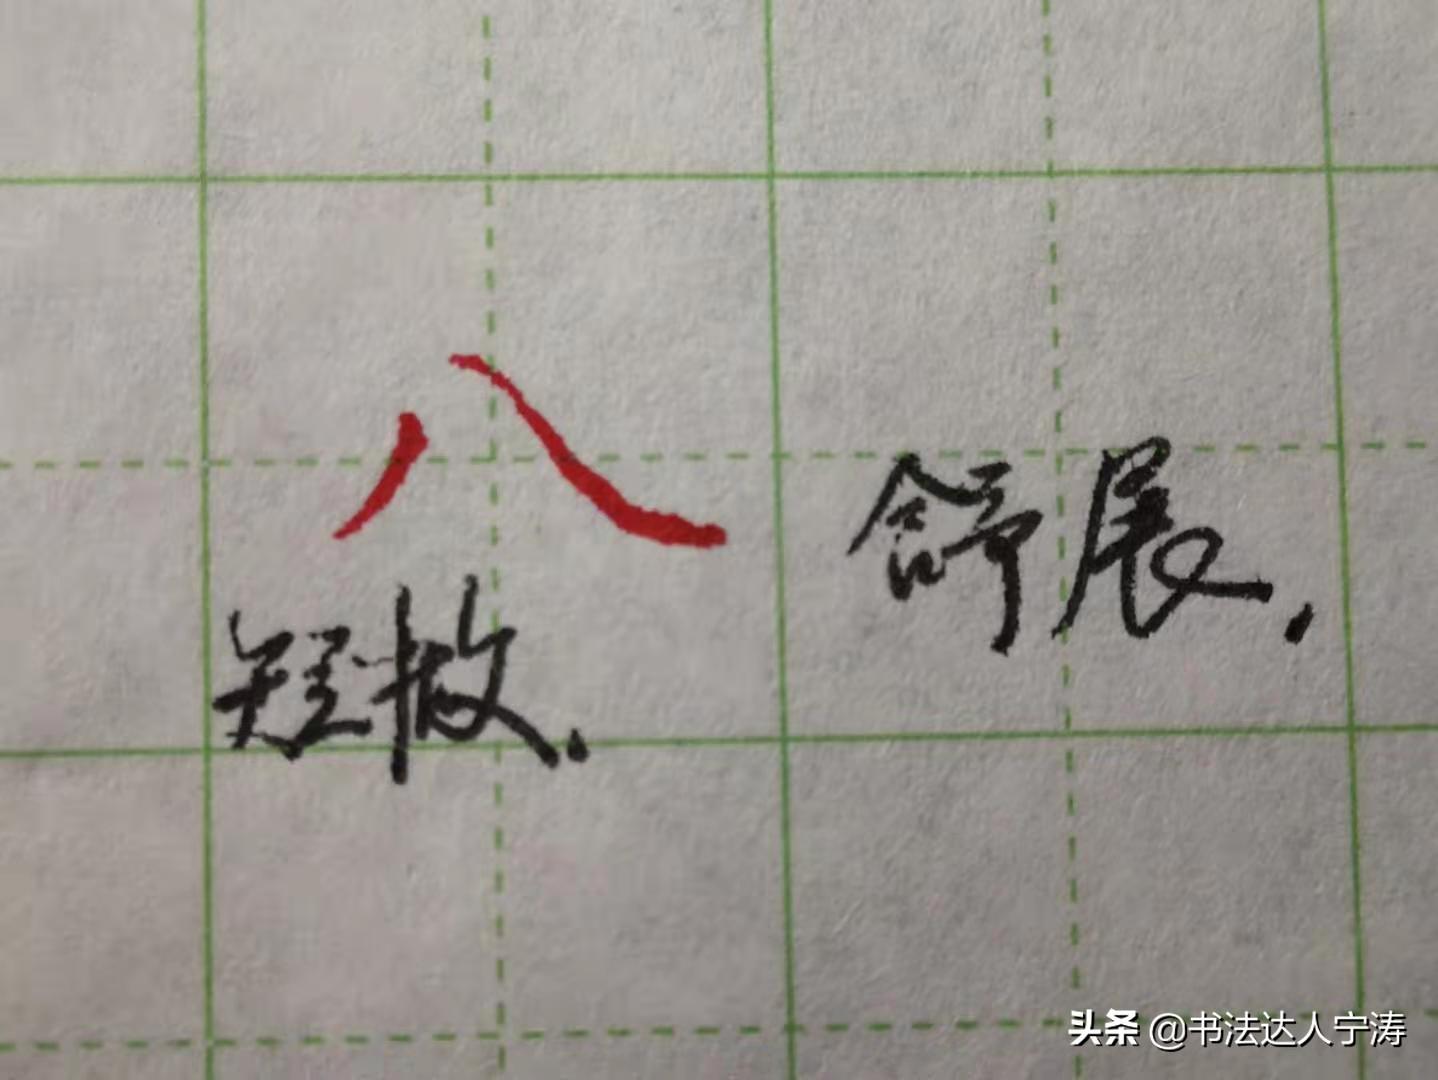 八
舒展.
短撇.
头条 @书法达人宁涛